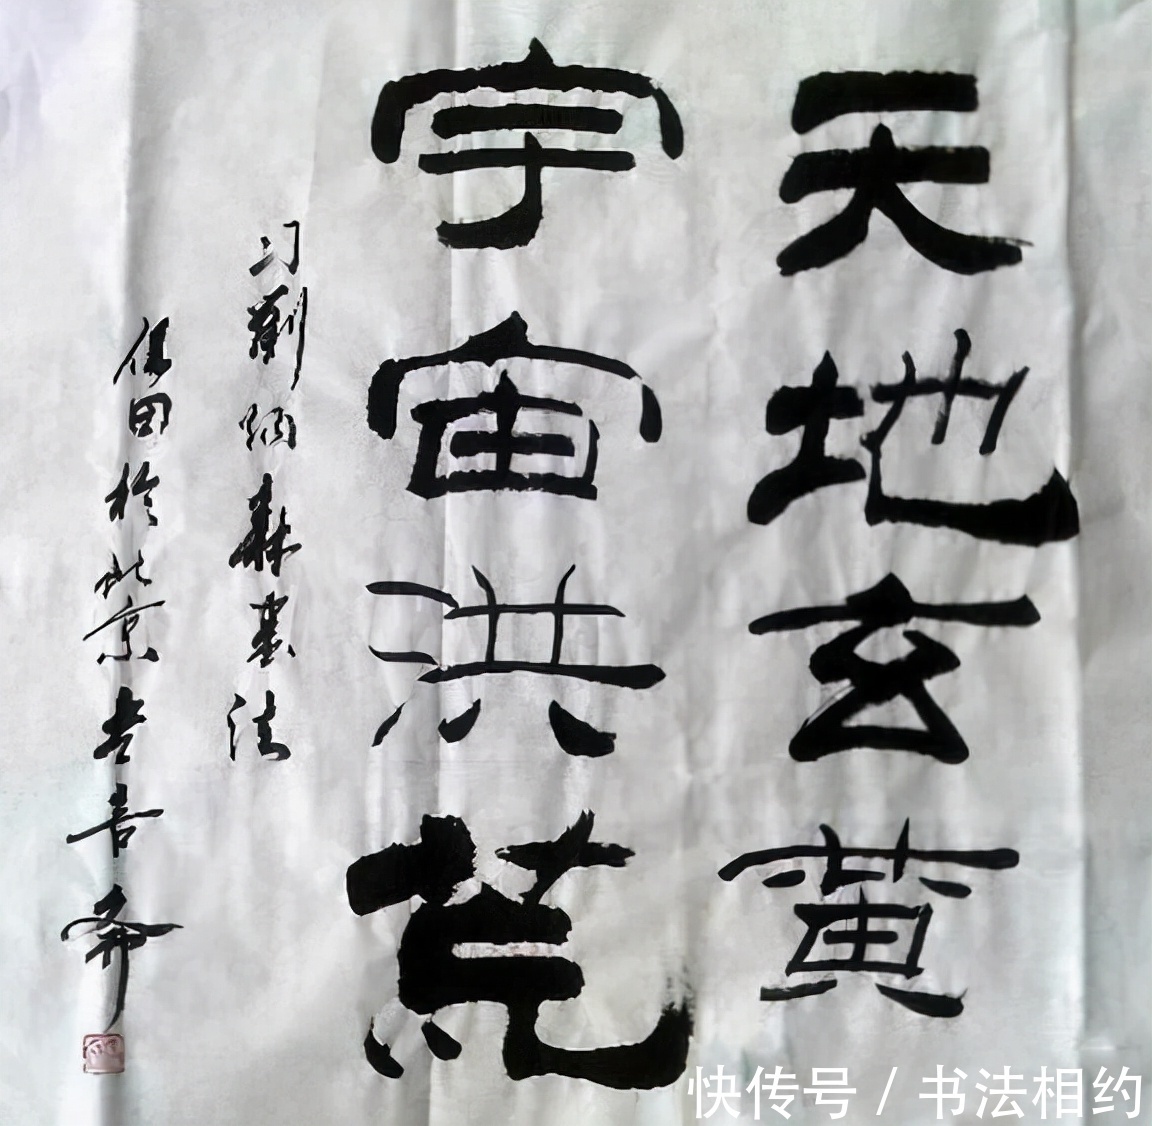 天地玄黄
宇宙洪荒
习刘炳森书法
保田於北京吉喜斋
快传号 / 书法相约